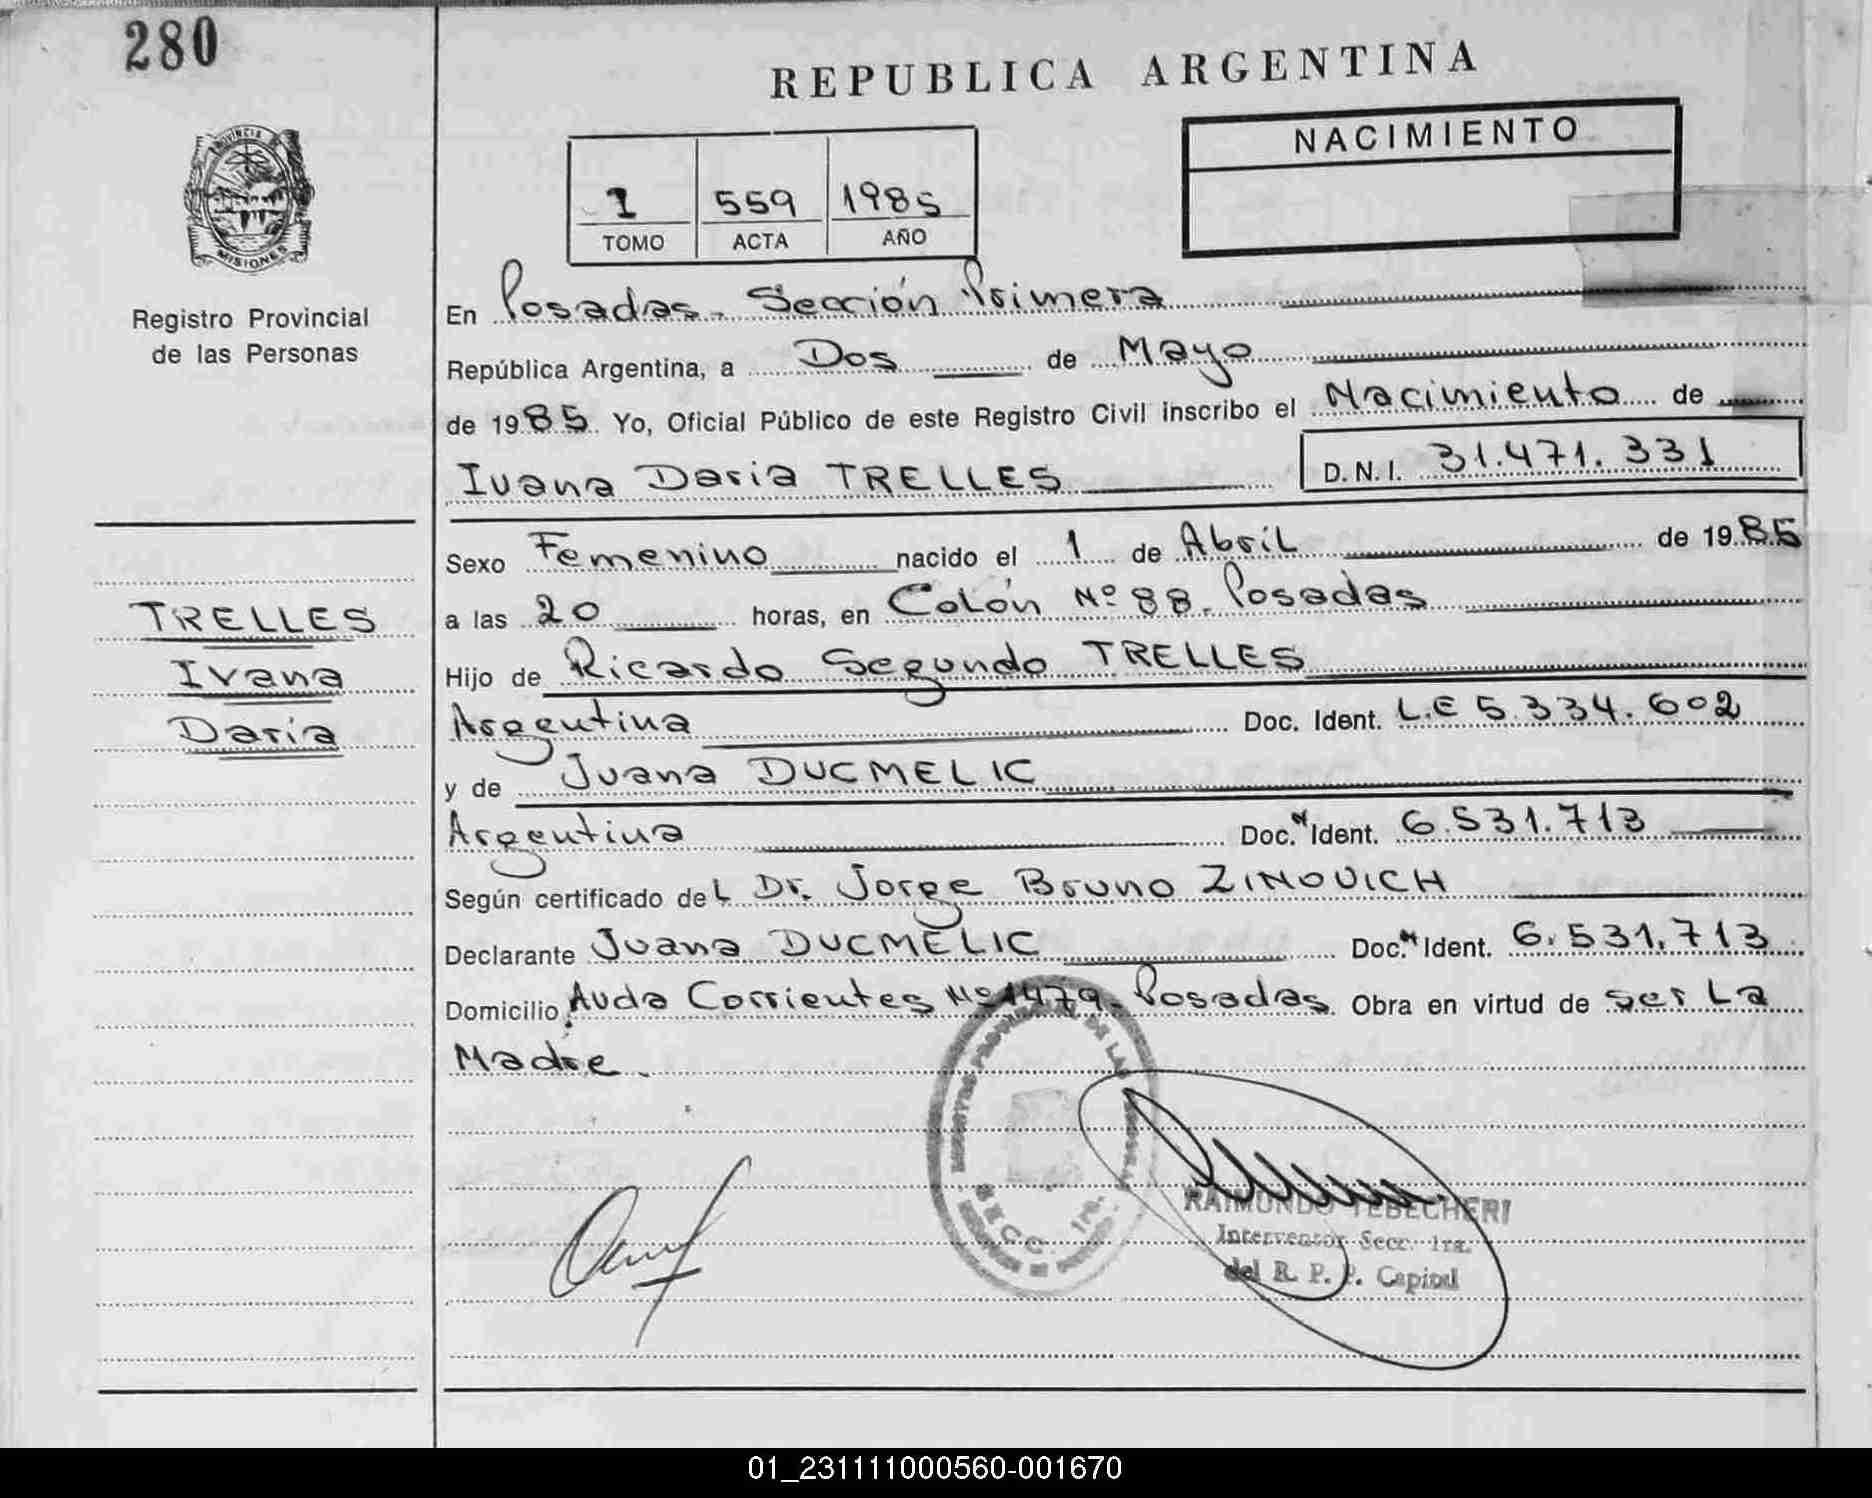 280
REPUBLICA ARGENTINA
NACIMIENTO
1 559 1985
TOMO ACTA AÑO
PROVINCIA
MISIONES
Registro Provincial
de las Personas
En Posadas. Sección Primera
República Argentina, a Dos de Mayo
de 1985 Yo, Oficial Público de este Registro Civil inscribo el Nacimiento de
Ivana Daria TRELLES D.N.I. 31.471.331
Sexo Femenino nacido el 1 de Abril de 1985
a las 20 horas, en Colón Nº 88. Posadas
Hijo de Ricardo Segundo TRELLES
Argentina Doc. Ident. L.E 5.334.602
y de Juana DUCMELIC
Argentina Doc. Ident. 6.531.713
Según certificado del Dr. Jorge Bruno ZINOVICH
Declarante Juana DUCMELIC Doc. Ident. 6.531.713
Domicilio Avda Corrientes Nº 1479. Posadas. Obra en virtud de ser La
Madre.
TRELLES
Ivana
Daria
REGISTRO PROVINCIAL DE LAS PERSONAS
SECC. 1ra.
RAIMUNDO TEBECHERI
Interventor Secc. 1ra.
del R. P. P. Capital
01_231111000560-001670